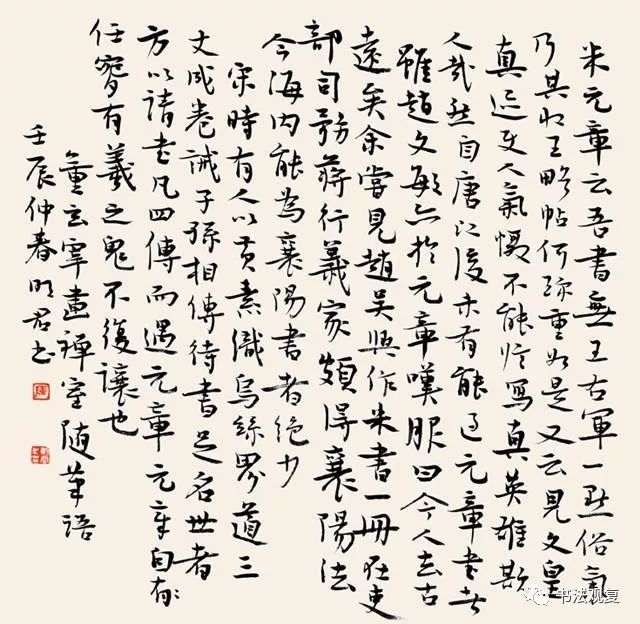 米元章云吾書無王右軍一點俗氣
乃其收王略帖何珍重如是又云見文皇
真迹使人氣懾不能臨寫真英雄欺
人哉然自唐以後未有能過元章書者
雖趙文敏亦於元章嘆服曰今人去古
遠矣余嘗見趙吳興作米書一冊在吏
部司務蔣行義家頗得襄陽法
今海內能為襄陽書者絕少
宋時有人以黃素織烏絲界道三
丈成卷誡子孫相傳待書足名世者
方以請書凡四傳而遇元章元章自有
任腕有羲之鬼不復讓也
董玄宰畫禪室隨筆語
壬辰仲春明君書
书法观复